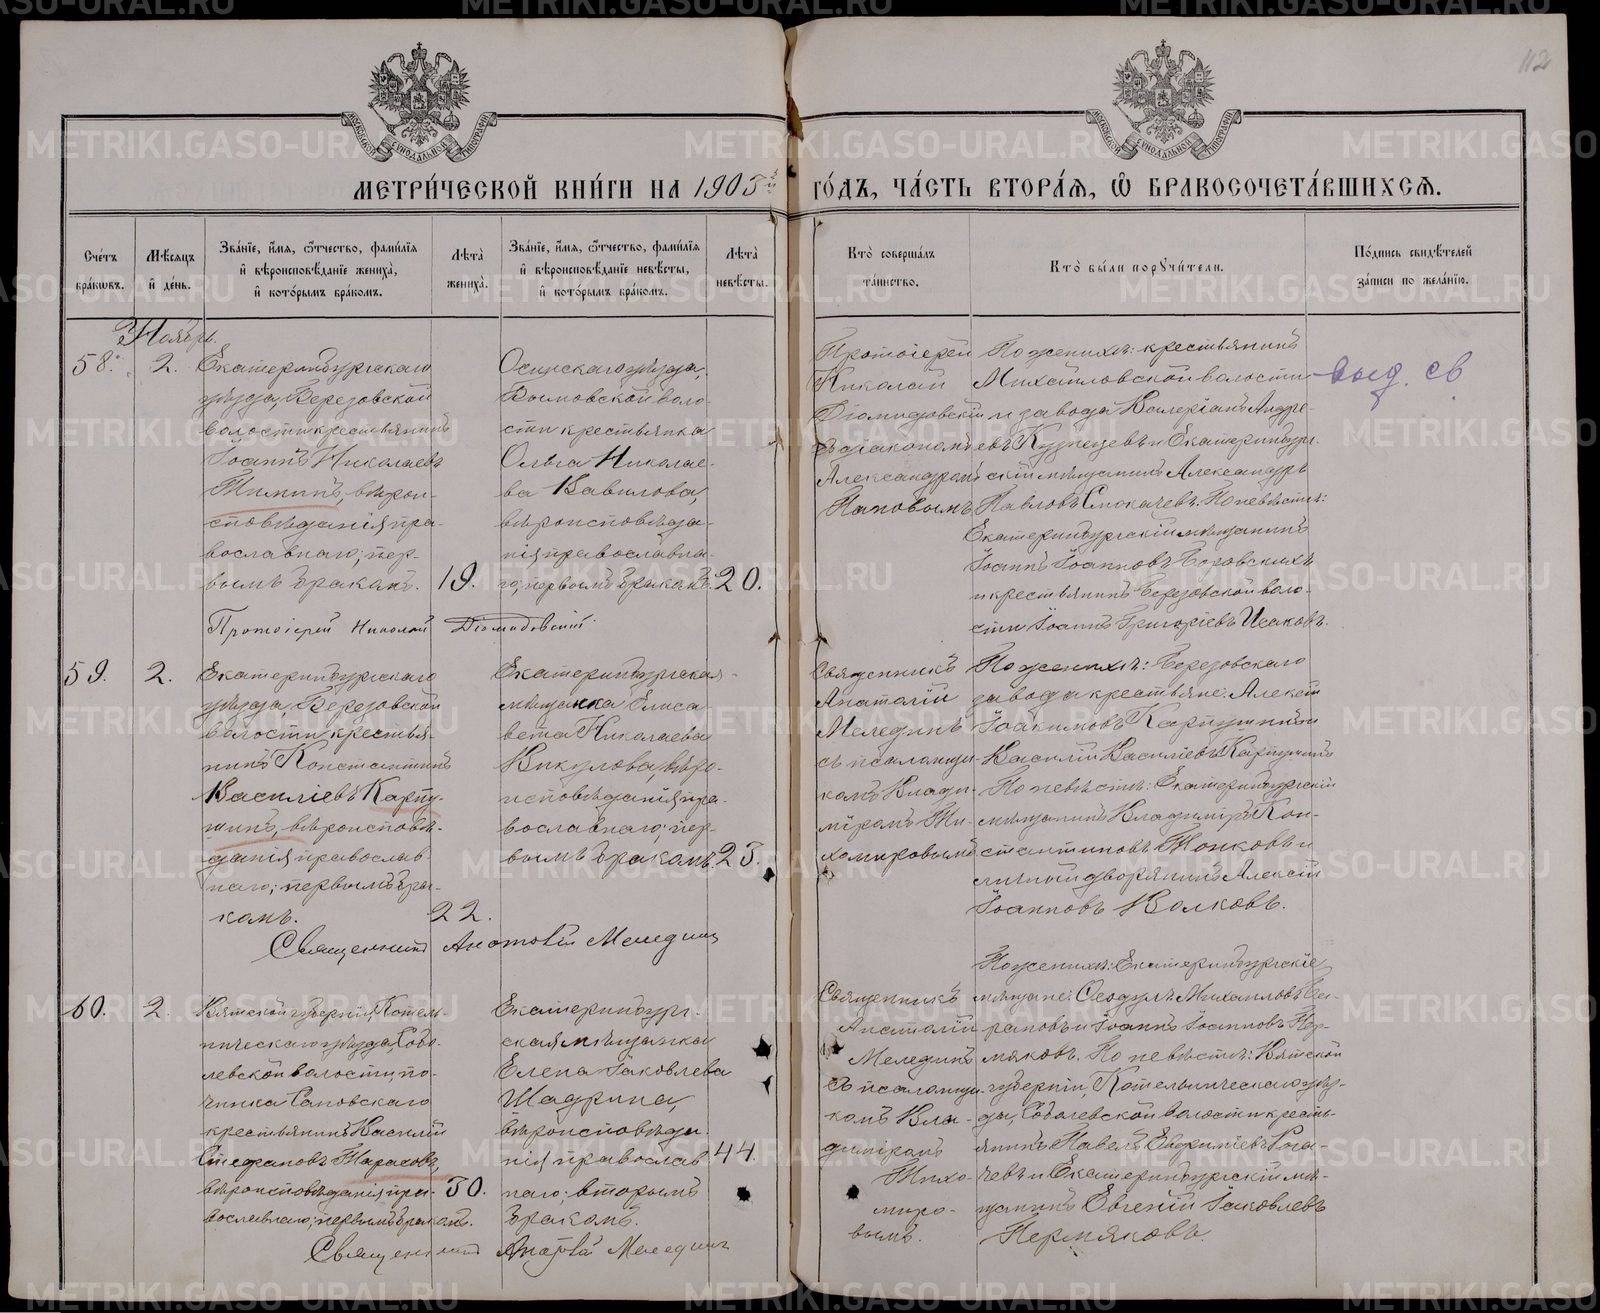 112
МЕТРИ́ЧЕСКОЙ КНИ́ГИ НА 1905й ГО́ДЪ, ЧА́СТЬ ВТОРА́Я, Ѿ БРАКОСОЧЕТА́ВШИХСЯ.
Сче́тъ бра́кωвъ.
Мѣ́сяцъ и҆ де́нь.
Зва́нїе, и҆́мя, ѻ҆́тчество, фами́лїя и҆ вѣроисповѣ́данїе жениха̀, и҆ кото́рымъ бра́комъ.
Лѣ́та жениха̀.
Зва́нїе, и҆́мя, ѻ҆́тчество, фами́лїя и҆ вѣроисповѣ́данїе невѣ́сты, и҆ кото́рымъ бра́комъ.
Лѣ́та невѣ́сты.
Кто̀ соверша́лъ та́инство.
Кто̀ бы́ли порꙋчи́тели.
По́дпись свидѣ́телей за́писи по жела́нїю.
Ноябрь.
58.
2.
Екатеринбургскаго
уѣзда, Березовской
волости крестьянинъ
Іоаннъ Николаевъ
Тиминъ, вѣрои-
сповѣданія пра-
вославнаго; пер-
вымъ бракомъ.
19.
Осинскаго уѣзда,
воло-
сти крестьянка
Ольга Николае-
ва Вавилова,
вѣроисповѣда-
нія православна-
го; первымъ бракомъ.
20.
Протоіерей
Николай
Діомидовскій
съ діакономъ
Александромъ
Поповымъ
По женихѣ: крестьянинъ
Михайловской волости
и завода Валеріанъ Андре-
евъ Кузнецевъ и Екатеринбург-
скій мѣщанинъ Александръ
Павловъ По невѣстѣ:
Екатеринбургскій мѣщанинъ
Іоаннъ Іоанновъ Боровскихъ
и крестьянинъ Березовской воло-
сти Іоаннъ Григоріевъ Исаковъ.
выд. св
Протоіерей Николай Діомидовскій
59.
2.
Екатеринбургскаго
уѣзда, Березовской
волости крестья-
нинъ Константинъ
Василіевъ Карпу-
шинъ, вѣроисповѣ-
данія православ-
наго; первымъ бра-
комъ.
22.
Екатеринбургская
мѣщанка Елиса
вета Николаева
Викулова, вѣро-
исповѣданія пра-
вославнаго; пер-
вымъ бракомъ.
23.
Священникъ
Анатолій
Мелединъ
съ псаломщи-
комъ Влади-
міромъ Ти-
хомировымъ
По женихѣ: Березовскаго
завода крестьяне: Алексій
Іоакимовъ Карпушинъ и
Василій Василіевъ Карпушинъ
По невѣстѣ: Екатеринбургскій
мѣщанинъ Владиміръ Кон-
стантиновъ Тонковъ и
личный дворянинъ Алексій
Іоанновъ Волковъ.
Священникъ Анатолій Меледин
60.
2.
Вятской губерніи, Котель-
ническаго уѣзда, Собо-
левской волости, по-
чинка Саповскаго
крестьянинъ Василій
Стефановъ Тарасовъ,
вѣроисповѣданія пра-
вославнаго; первымъ бракомъ.
30.
Екатеринбург-
ская мѣщанка
Елена Іаковлева
Шадрина,
вѣроисповѣда-
нія православ
наго; вторымъ
бракомъ.
44
Священникъ
Анатолій
Мелединъ
съ псаломщи-
комъ Вла-
диміромъ
Тихо-
миро-
вымъ.
По женихѣ: Екатеринбургскіе
мѣщане: Ѳеодулъ Михаиловъ
и Іоаннъ Іоанновъ Пер-
мяковъ. По невѣстѣ: Вятской
губерніи, Котельническаго уѣз-
да, Соболевской волости кресть-
янинъ Павелъ Евфиміевъ Рога-
чевъ и Екатеринбургскій мѣ-
щанинъ Евгеній Іаковлевъ
Пермяковъ.
Священникъ Анатолій Меледин
METRIKI.GASO-URAL.RU